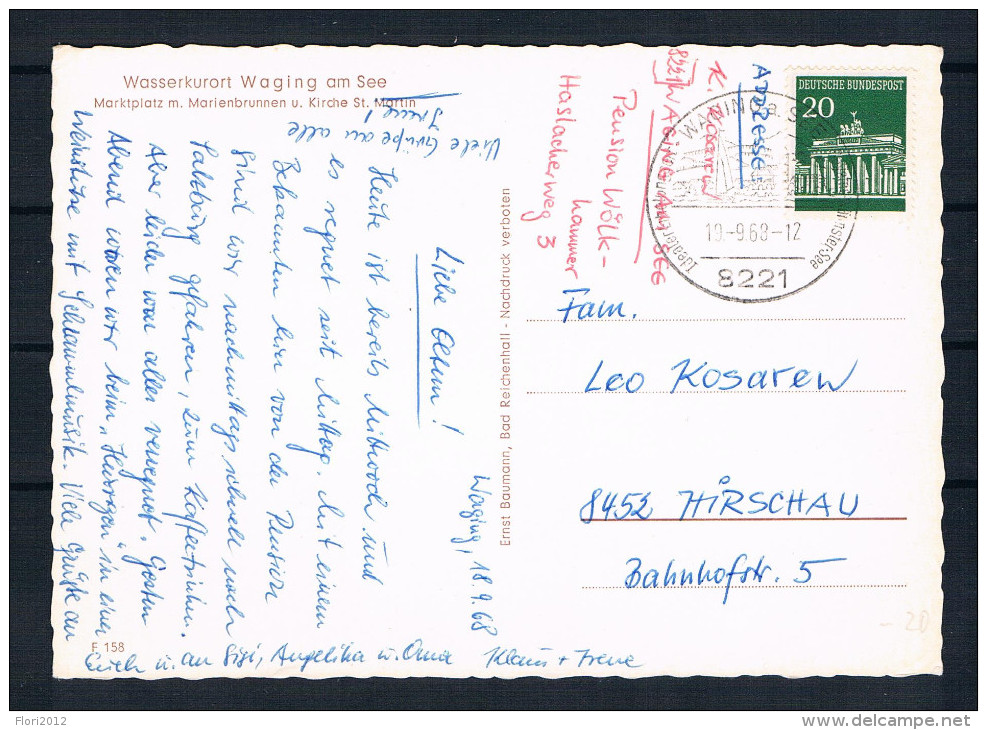 Wasserkurort Waging am See
Marktplatz m. Marienbrunnen u. Kirche St. Martin
Viele Grüße an alle
Waging, 18.9.68
Liebe Eltern!
Heute ist bereits Mittwoch und
es regnet seit Mittag. Mit einem
Bekannten hier von der Pension
sind wir nachmittags schnell nach
Salzburg gefahren, zum Kaffeetrinken.
Aber leider war alles verregnet. Gestern
Abend waren wir beim "Heurigen" in einer
Weinstube mit Schrammelmusik. Viele Grüße an
Euch u. an Sigi, Angelika u. Oma Klaus + Irene
E 158
Ernst Baumann, Bad Reichenhall - Nachdruck verboten
ADDRESSE:
K. Kosarew
8221 WAGING AM SEE
Pension Wölk-
hammer
Haslacherweg 3
DEUTSCHE BUNDESPOST
20
WAGING a. See
19.-9.68-12
8221
Fam.
Leo Kosarew
8452 HIRSCHAU
Bahnhofstr. 5
- 20
Flori2012
delcampe.net